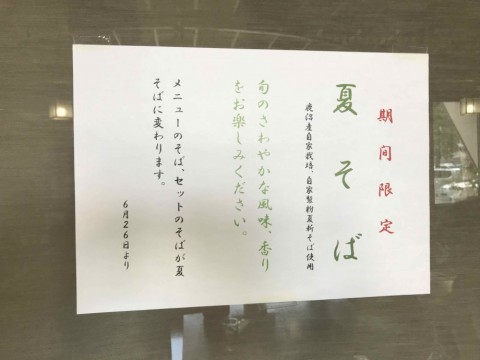 期間限定
夏そば
鹿沼産自家栽培、自家製粉夏新そば使用
旬のさわやかな風味、香り
をお楽しみください。
メニューのそば、セットのそばが夏
そばに変わります。
6月26日より